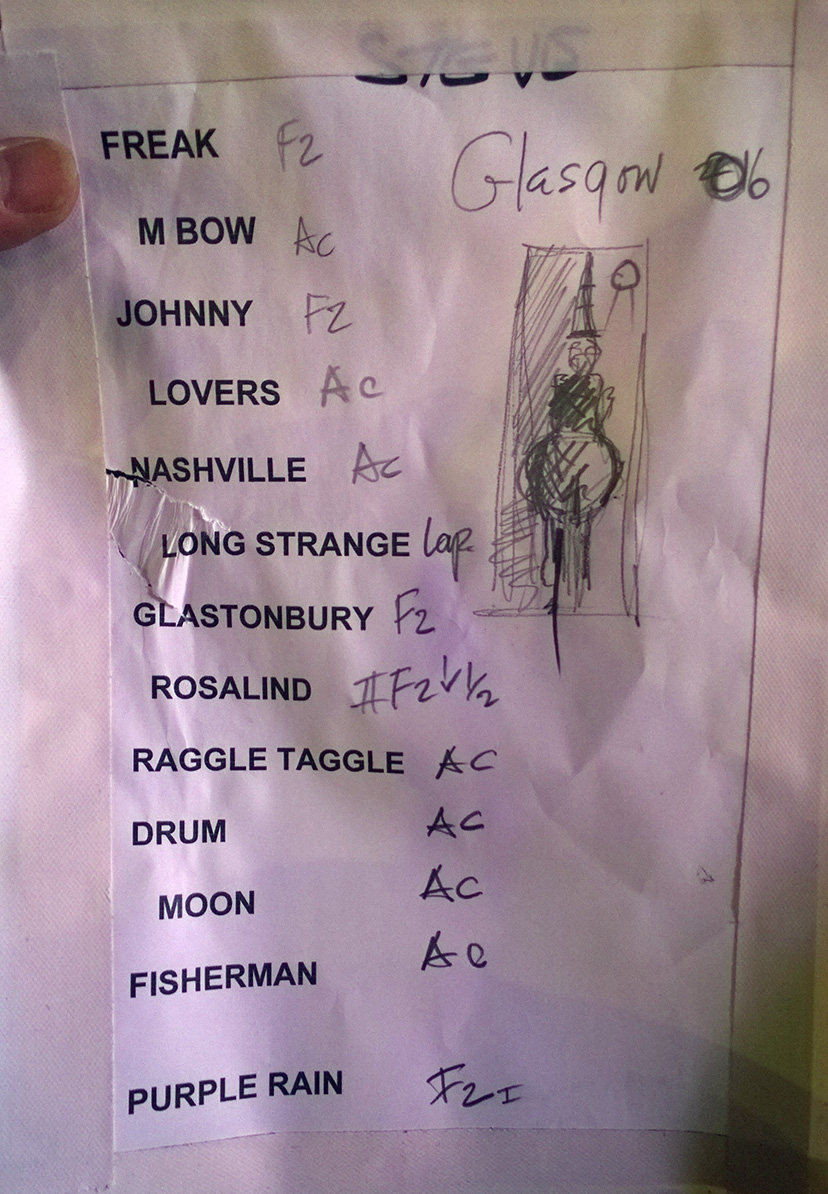 STEVE
FREAK F2
Glasgow 06
M BOW AC
JOHNNY F2
LOVERS AC
NASHVILLE AC
LONG STRANGE lap
GLASTONBURY F2
ROSALIND II F2 ↓ 1/2
RAGGLE TAGGLE AC
DRUM AC
MOON AC
FISHERMAN AC
PURPLE RAIN F2 I